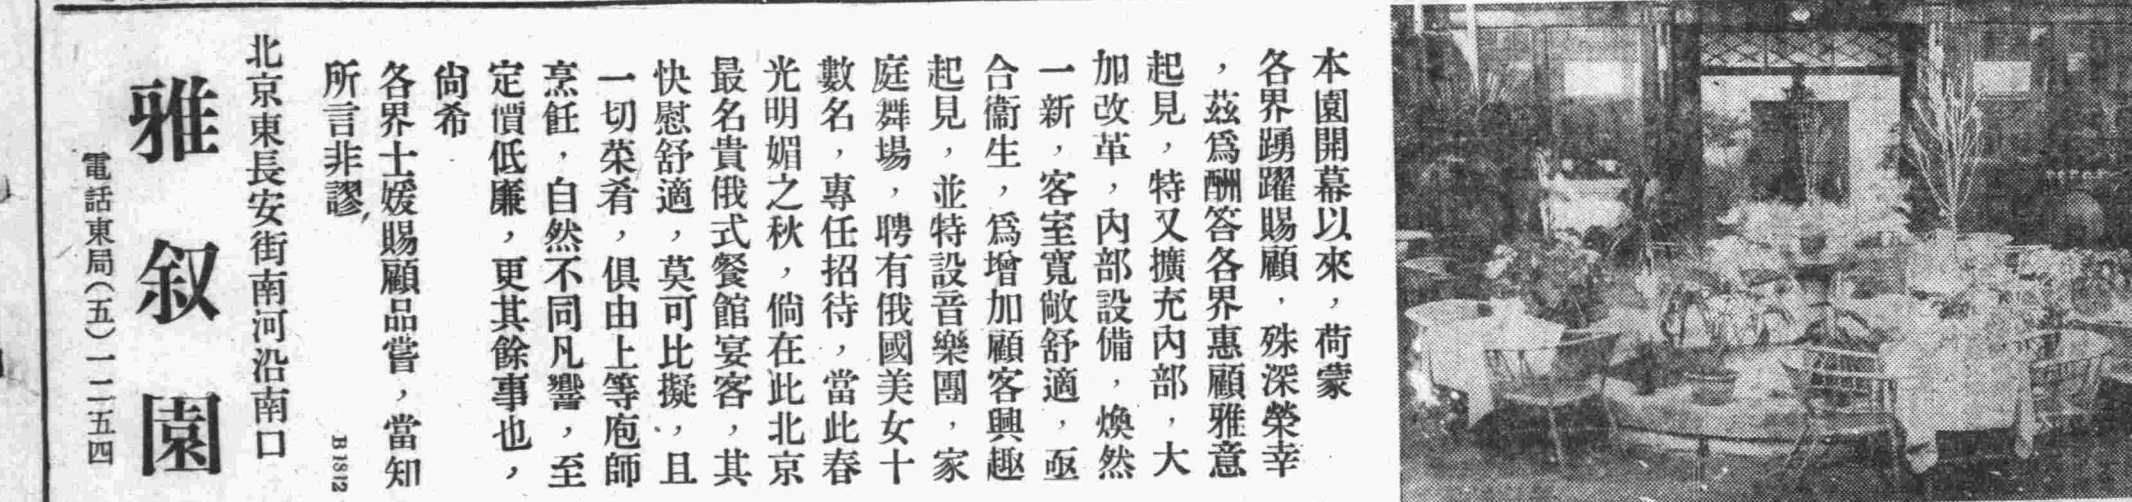 本園開幕以來，荷蒙
各界踴躍賜顧，殊深榮幸
，茲爲酬答各界惠顧雅意
起見，特又擴充內部，大
加改革，內部設備，煥然
一新，客室寬敞舒適，亟
合衞生，爲增加顧客興趣
起見，並特設音樂團，家
庭舞場，聘有俄國美女十
數名，專任招待，當此春
光明媚之秋，倘在此北京
最名貴俄式餐館宴客，其
快慰舒適，莫可比擬，且
一切菜肴，俱由上等庖師
烹飪，自然不同凡響，至
定價低廉，更其餘事也，
尙希
各界士媛賜顧品嘗，當知
所言非謬，
B1812
北京東長安街南河沿南口
雅叙園
電話東局（五）一二五四